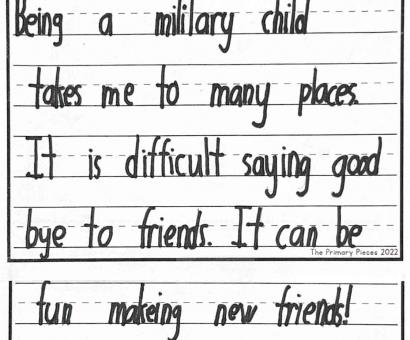 Being a military child
takes me to many places.
It is difficult saying good
bye to friends. It can be
The Primary Pieces 2022
fun makeing new friends!